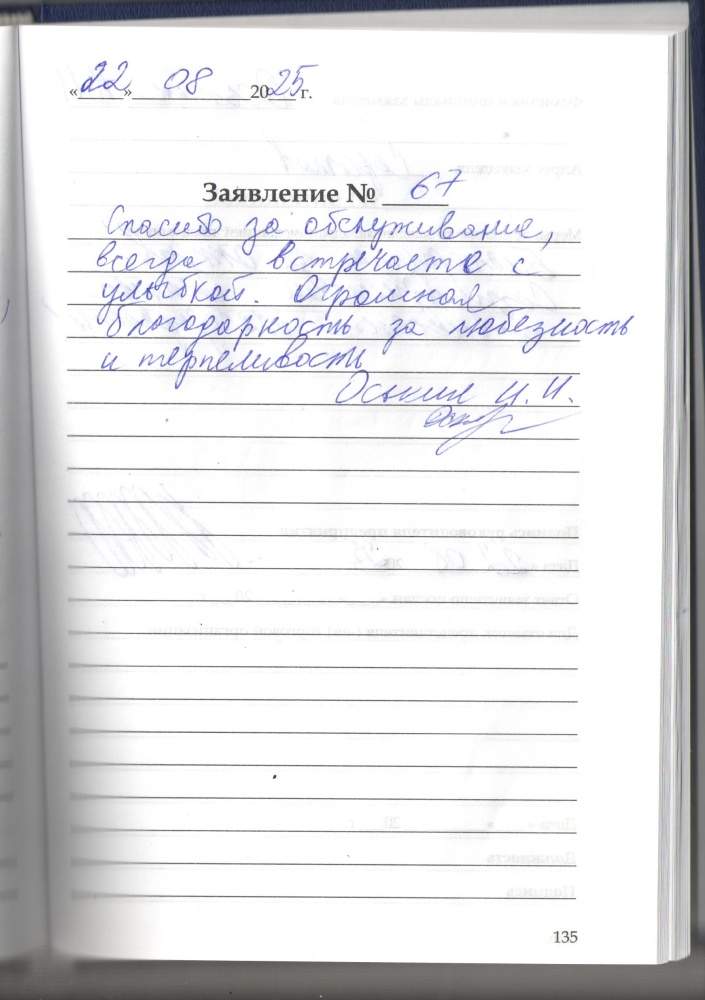 «22» 08 2025 г.
Заявление № 67
Спасибо за обслуживание,
всегда встречаете с
улыбкой. Огромная
благодарность за любезность
и терпеливость
Оськин И. И.
135